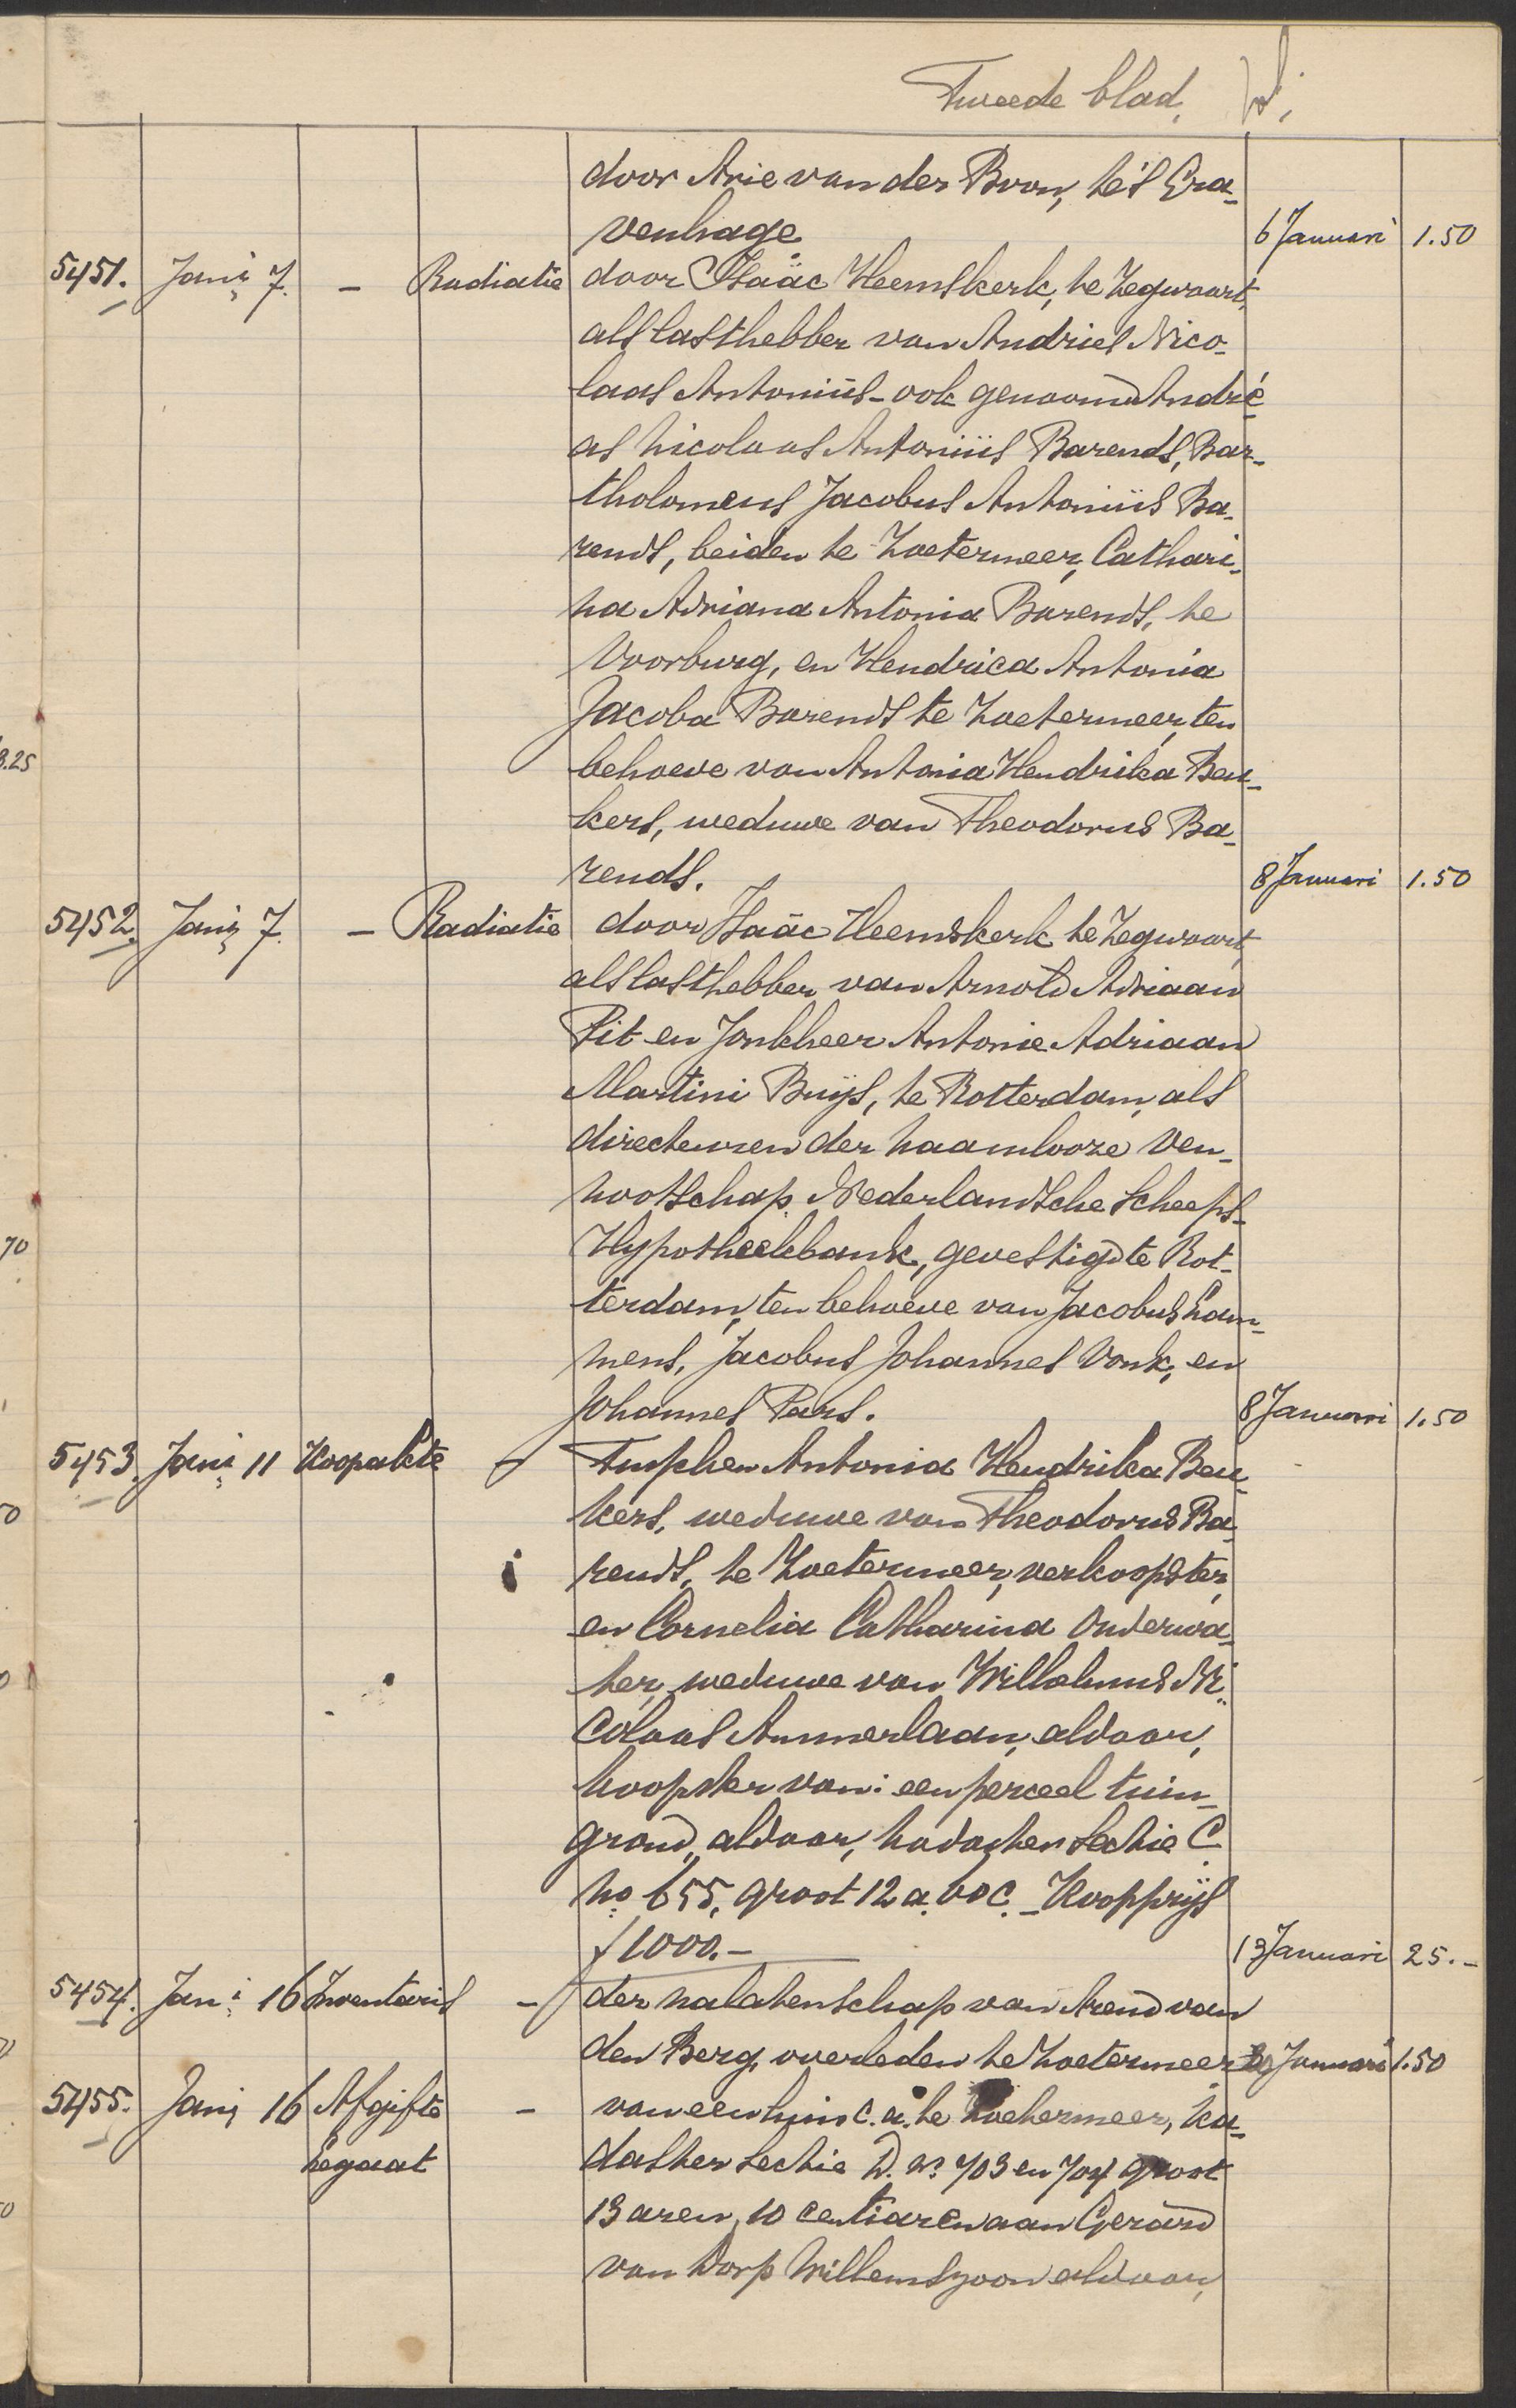 Tweede blad.
door Arie van der Boon, te 's Gra-
venhage 6 Januari 1.50
5451. Jan: 7. - Radiatie door Isaäc Heemskerk, te Zegwaart,
als lasthebber van Andries Nico-
laas Antonius - ook genaamd André-
as Nicolaas Antonius Barends, Bar-
tholomeus Jacobus Antonius Ba-
rends, beiden te Zoetermeer, Cathari-
na Adriana Antonia Barends, te
Voorburg, en Hendrica Antonia
Jacoba Barends te Zoetermeer, ten
behoeve van Antonia Hendrika Beu-
kers, weduwe van Theodorus Ba-
rends. 8 Januari 1.50
5452. Jan: 7. - Radiatie door Isaäc Heemskerk te Zegwaart
als lasthebber van Arnold Adriaan
Pit en Jonkheer Antonie Adriaan
Martini Buijs, te Rotterdam, als
directeuren der naamlooze Ven-
nootschap Nederlandsche Scheeps-
Hypotheekbank, gevestigd te Rot-
terdam, ten behoeve van Jacobus Lam-
mens, Jacobus Johannes Vonk, en
Johannes Pars. 8 Januari 1.50
5453. Jan: 11 Koopakte - Tusschen Antonia Hendrika Beu-
kers, weduwe van Theodorus Ba-
rends, te Zoetermeer, verkoopster,
en Cornelia Catharina Onderwa-
ter, weduwe van Wilhelmus Ni-
colaas Ammerlaan, aldaar,
koopster van: een perceel tuin-
grond, aldaar, kadaster Sectie C.
no. 655, groot 12 a. 60 c. - Koopprijs
f 1000.- 13 Januari 25.-
5454. Jan: 16 Inventaris - der nalatenschap van Arend van
den Berg, overleden te Zoetermeer 20 Januari 1.50
5455. Jan: 16 Afgifte - van een huis c.a. te Zoetermeer, ka-
Legaat daster Sectie D. no. 703 en 704 groot
13 aren, 10 centiaren aan Gerard
van Dorp Willemszoon aldaar,
3.25
70